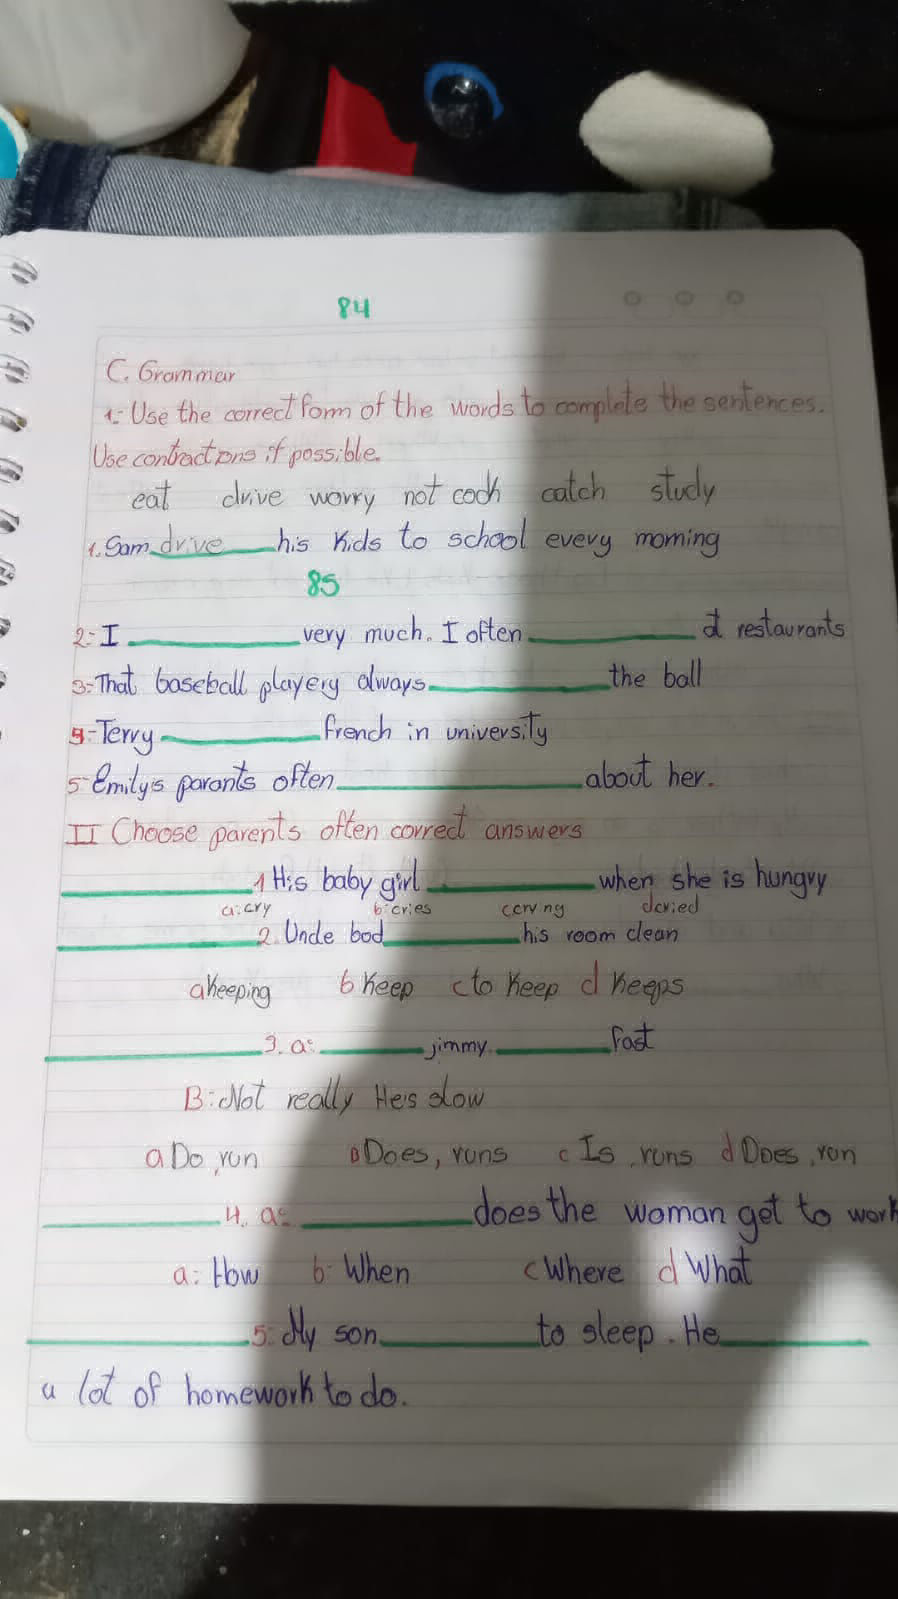 84
C. Grammar
1- Use the correct form of the words to complete the sentences.
Use contractions if possible.
eat drive worry not cook catch study
1. Sam drive his kids to school every morning
85
2- I very much. I often at restaurants
3- That baseball playery always the ball
4- Terry french in university
5- Emily's parants often about her.
II Choose parents often correct answers
1 His baby girl when she is hungry
a: cry b: cries c crying d cried
2. Uncle bod his room clean
a Keeping b Keep c to Keep d Keeps
3. a: jimmy fast
B: Not really He's slow
a Do, run B Does, runs c Is, runs d Does, run
4. a: does the woman get to work
a: How b: When c Where d What
5: My son to sleep. He
a lot of homework to do.